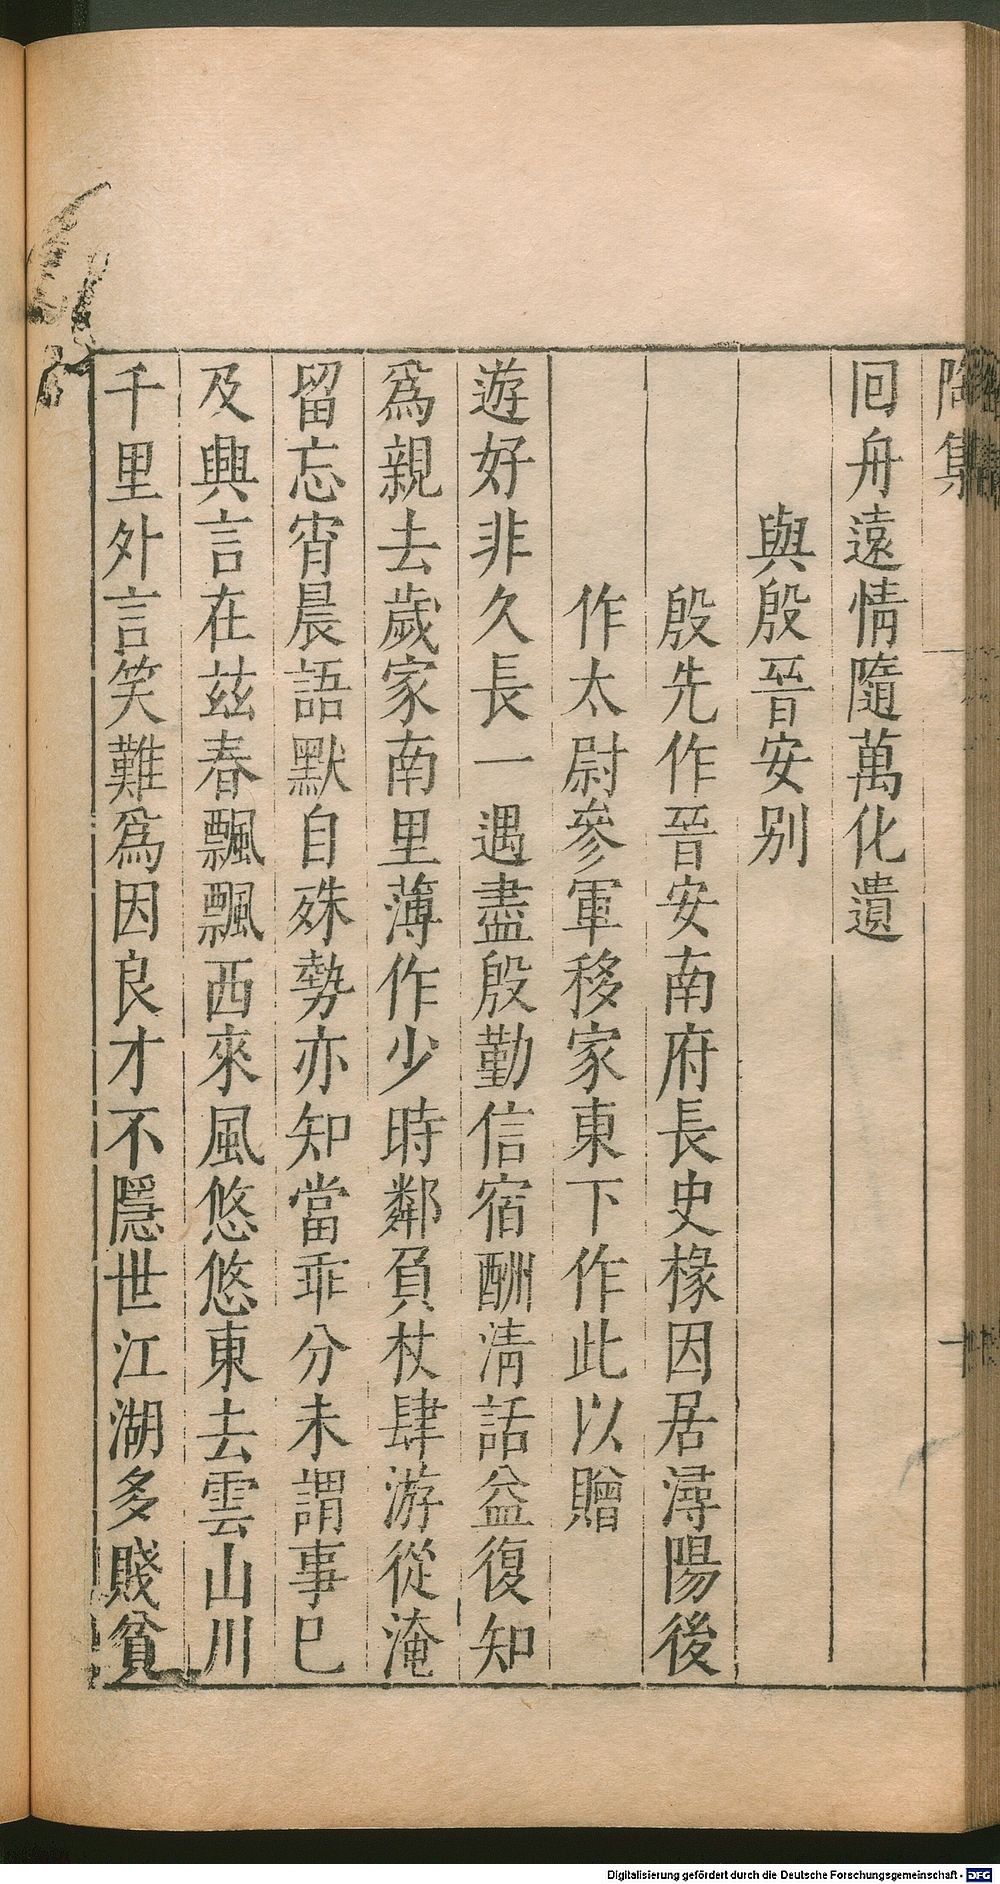 陶集
一
十
回舟遠情隨萬化遺
與殷晉安别
殷先作晉安南府長史椽因居潯陽後
作太尉參軍移家東下作此以贈
遊好非久長一遇盡殷勤信宿酬清話益復知
爲親去歲家南里薄作少時鄰負杖肆游從淹
留忘宵晨語默自殊勢亦知當乖分未謂事巳
及興言在玆春飄飄西來風悠悠東去雲山川
千里外言笑難爲因良才不隱世江湖多賤貧
Digitalisierung gefördert durch die Deutsche Forschungsgemeinschaft - DFG